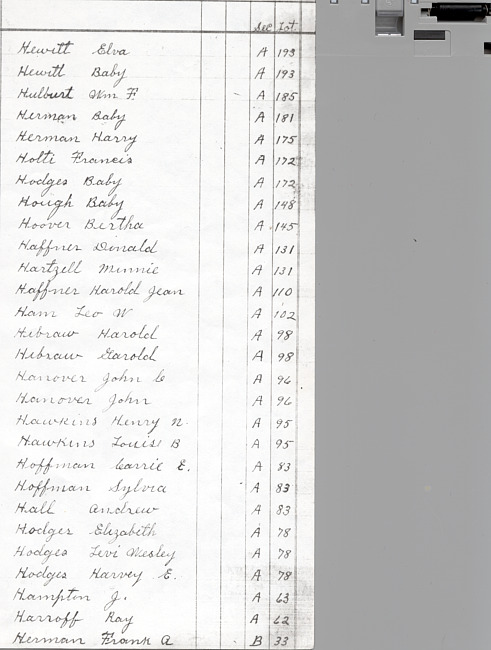 Sec Int.
Hewitt Elva A 193
Hewitt Baby A 193
Hulburt Wm F. A 185
Herman Baby A 181
Herman Harry A 175
Holti Francis A 172
Hodges Baby A 172
Hough Baby A 148
Hoover Bertha A 145
Haffner Donald A 131
Hartzell Minnie A 131
Haffner Harold Jean A 110
Ham Leo W A 102
Hibraw Harold A 98
Hibraw Garold A 98
Hanover John C A 96
Hanover John A 96
Hawkins Henry N. A 95
Hawkins Louise B A 95
Hoffman Carrie E. A 83
Hoffman Sylvia A 83
Hall Andrew A 83
Hodges Elizabeth A 78
Hodges Levi Wesley A 78
Hodges Harvey E. A 78
Hampton J. A 63
Harroff Ray A 62
Herman Frank A B 33